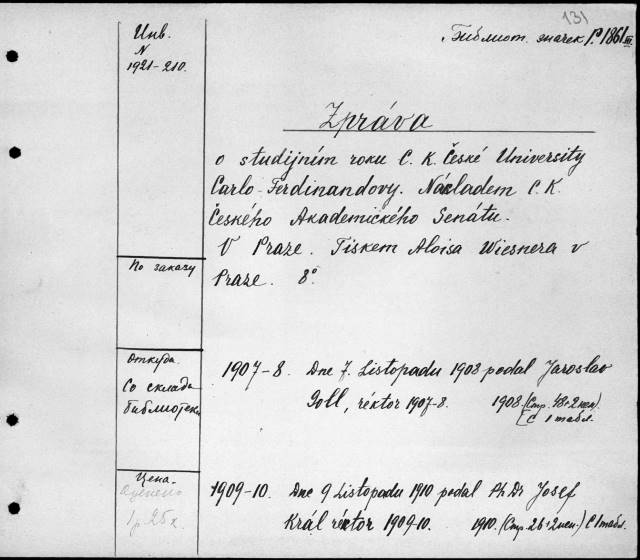 131
Библиот. значек Р 1861 III
Инв.
N
1921-210.
Zpráva
o studijním roku C. K. České University
Carlo-Ferdinandovy. Nákladem C. K.
Českého Akademického Senátu.
V Praze. Tiskem Aloisa Wiesnera v
Praze. 8º
По заказу
Откуда
Со склада
библиотеки
1907-8. Dne 7. Listopadu 1908 podal Jaroslav
Goll, réktor 1907-8. 1908. (Стр. 48+2нен).
С 1 табл.
Цена.
Оценено
1 р. 25 к.
1909-10. Dne 9 Listopadu 1910 podal Ph Dr Josef
Král réktor 1909-10. 1910. (Стр. 26+2нен.) С 1 табл.